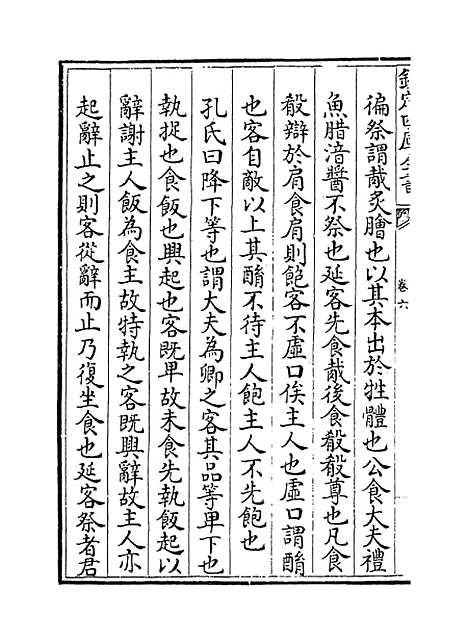 欽定四庫全書
卷六
徧祭謂胾炙膾也以其本出於牲體也公食大夫禮
魚腊湆醬不祭也延客先食胾後食殽殽尊也凡食
殽辯於肩食肩則飽客不虛口俟主人也虛口謂酳
也客自敵以上其酳不待主人飽主人不先飽也
孔氏曰降下等也謂大夫為卿之客其品等卑下也
執捉也食飯也興起也客既卑故未食先執飯起以
辭謝主人飯為食主故特執之客既興辭故主人亦
起辭止之則客從辭而止乃復坐食也延客祭者君